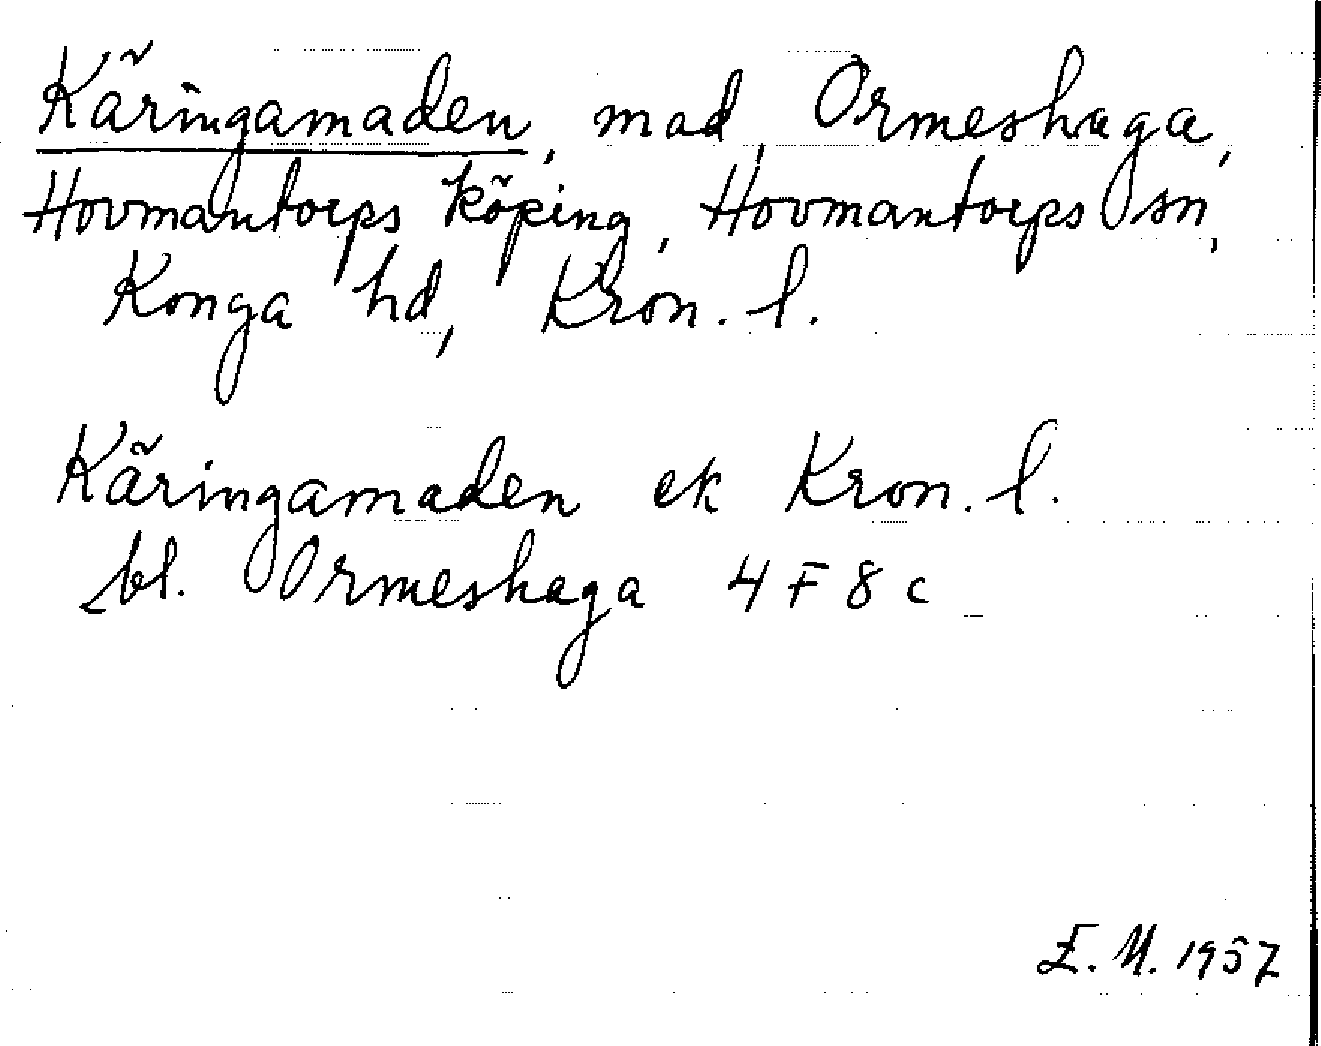 Käringamaden, mad, Ormeshaga,
Hovmantorps köping, Hovmantorps sn,
Konga hd, Kron. l.
Käringamaden ek Kron. l.
bl. Ormeshaga 4 F 8 c
E. M. 1957